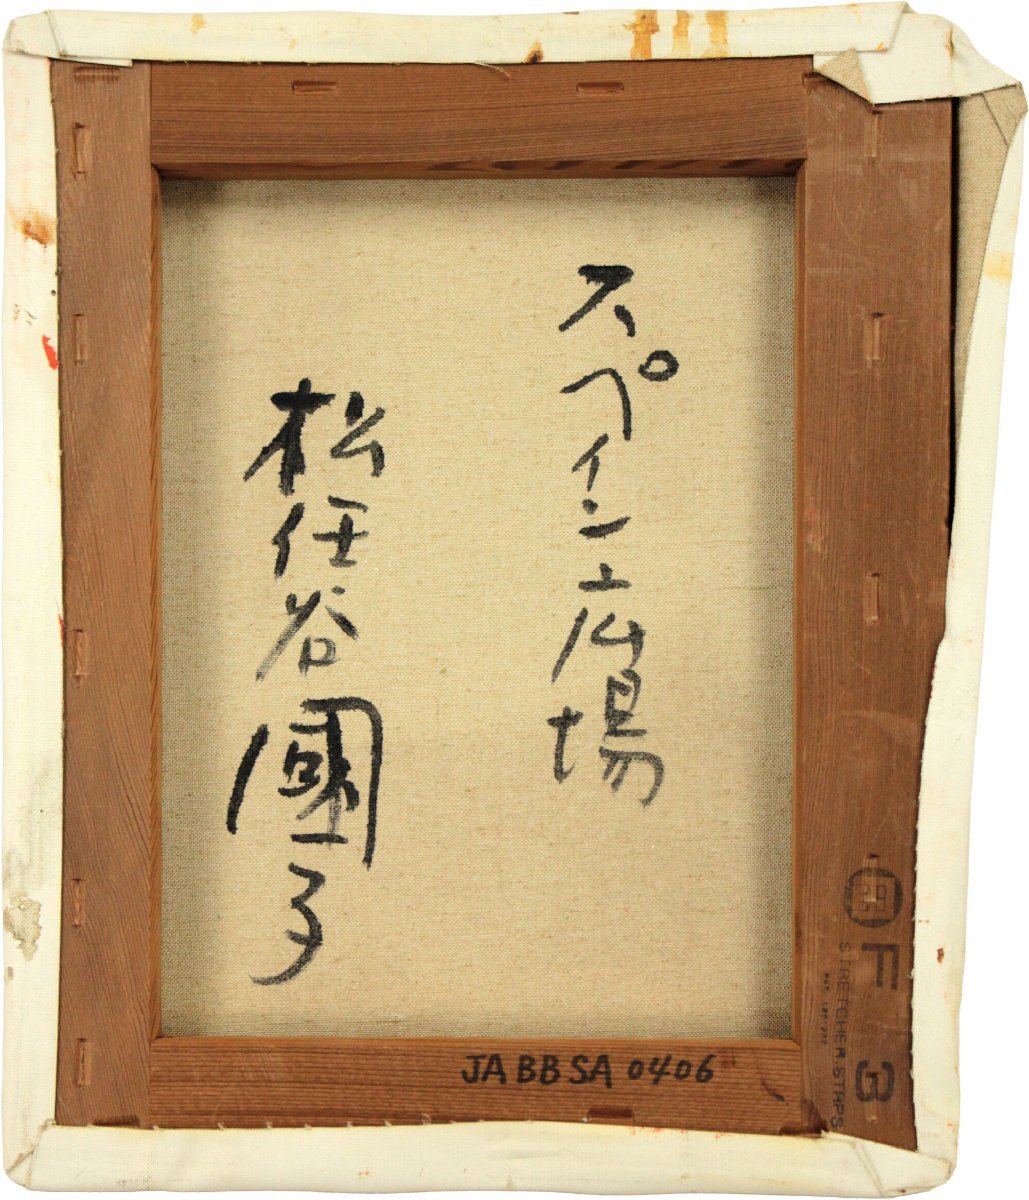 スペイン広場
松任谷國子
JABBSA 0406
F 3
STRETCHER STRPS